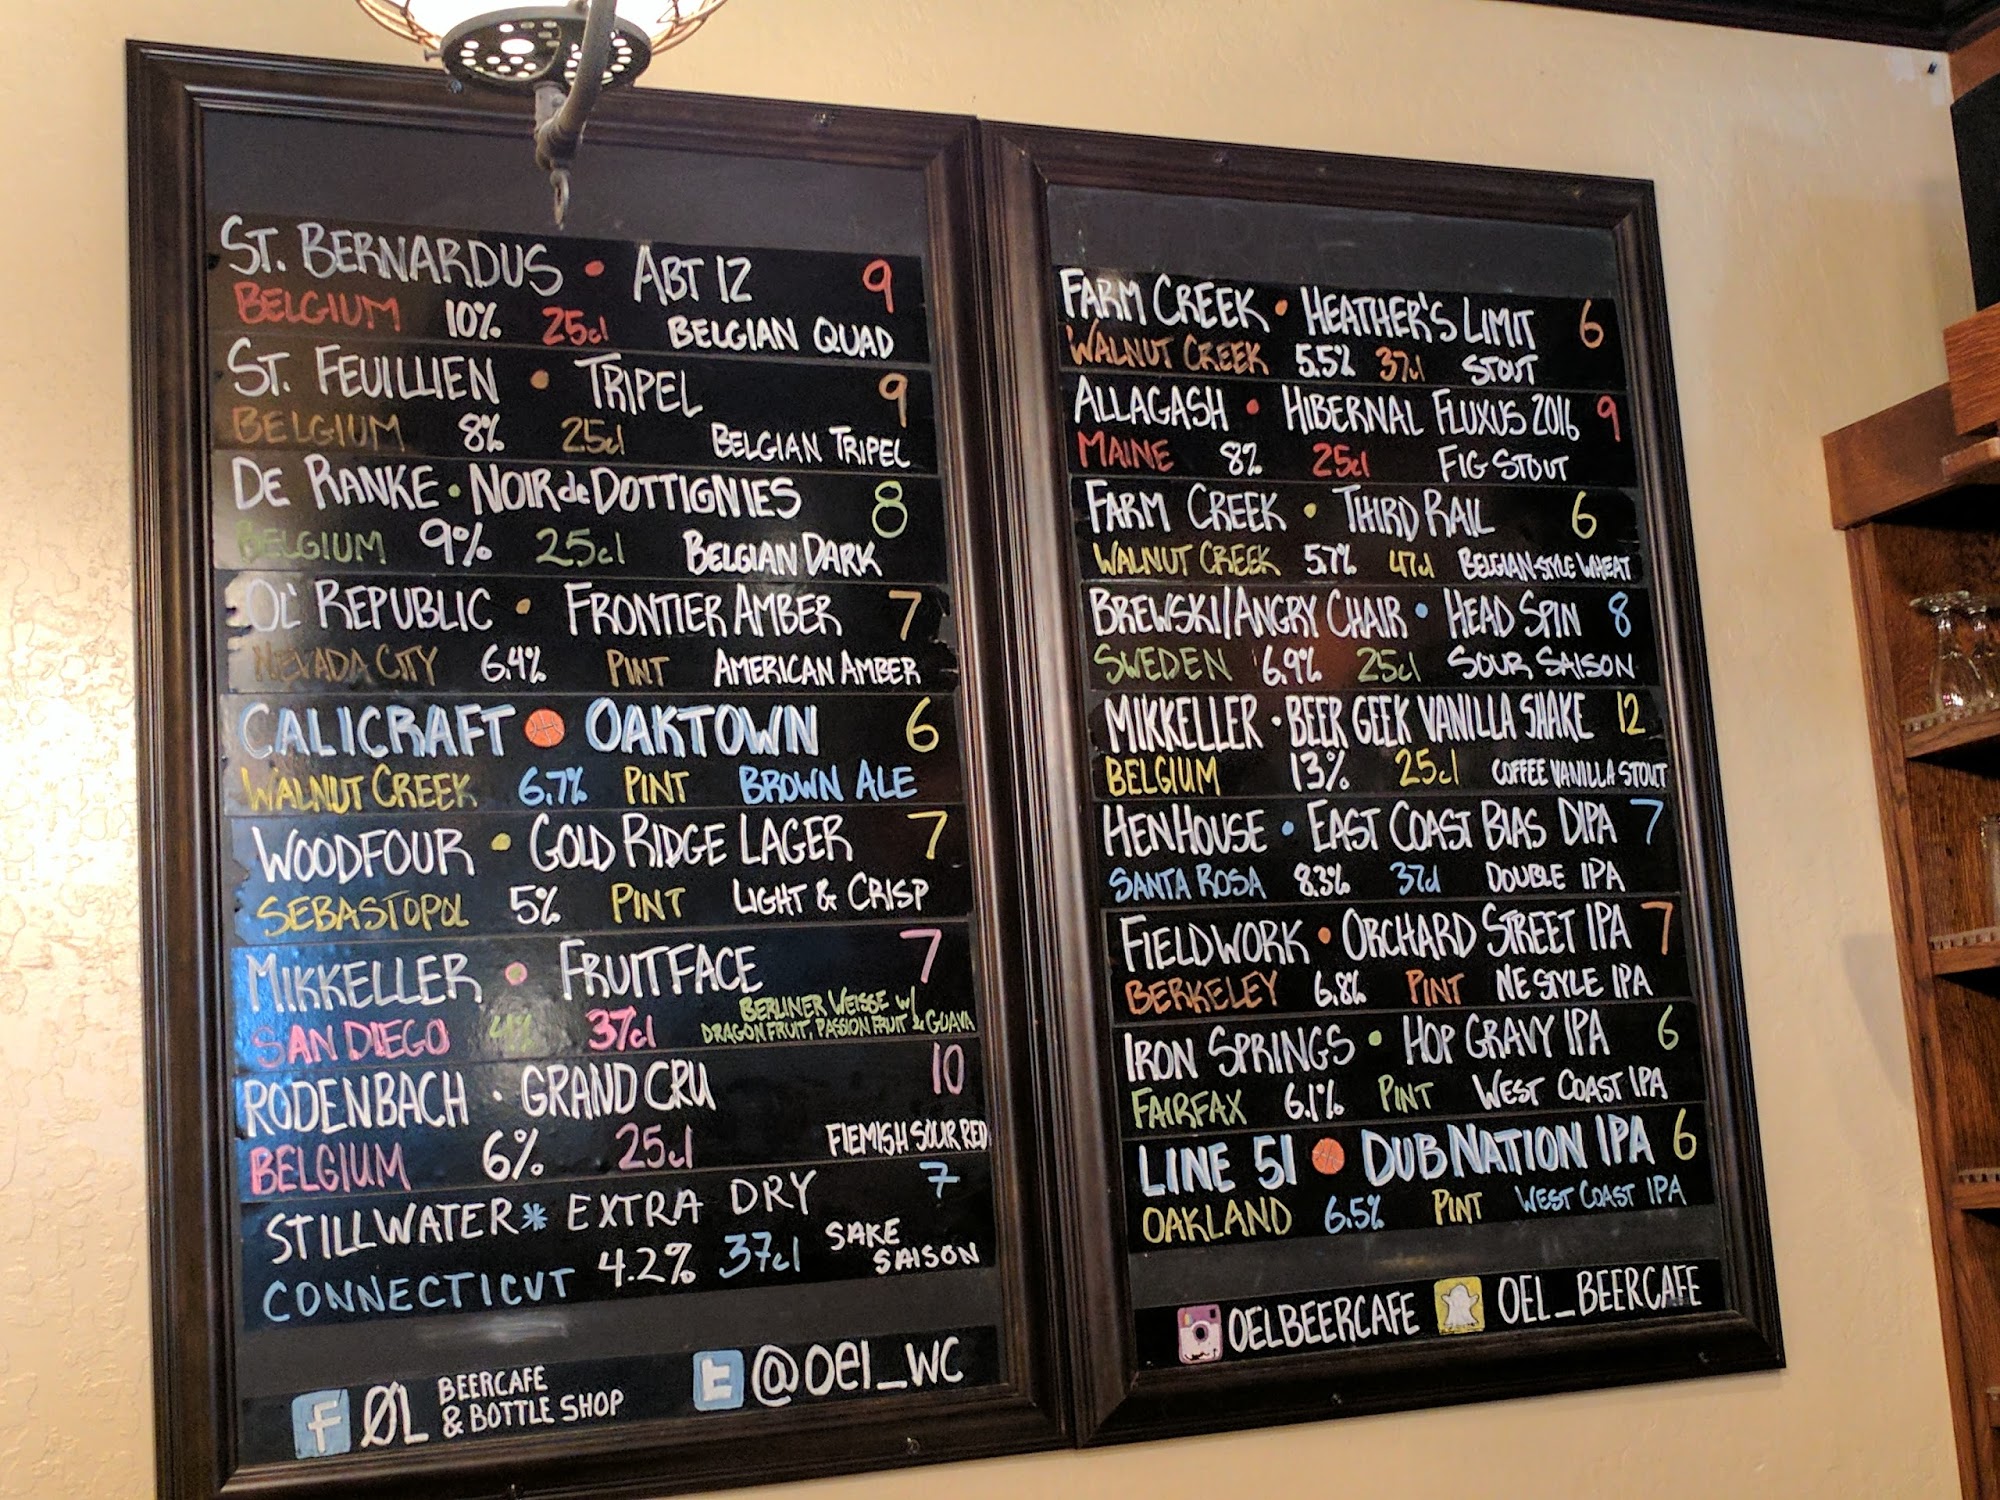 ST. BERNARDUS • ABT 12 9
BELGIUM 10% 25cl BELGIAN QUAD
ST. FEUILLIEN • TRIPEL 9
BELGIUM 8% 25cl BELGIAN TRIPEL
DE RANKE • NOIR de DOTTIGNIES 8
BELGIUM 9% 25cl BELGIAN DARK
OL' REPUBLIC • FRONTIER AMBER 7
NEVADA CITY 6.4% PINT AMERICAN AMBER
CALICRAFT OAKTOWN 6
WALNUT CREEK 6.7% PINT BROWN ALE
WOODFOUR • GOLD RIDGE LAGER 7
SEBASTOPOL 5% PINT LIGHT & CRISP
MIKKELLER • FRUITFACE 7
SAN DIEGO 4% 37cl BERLINER WEISSE w/
DRAGON FRUIT, PASSION FRUIT & GUAVA
RODENBACH • GRAND CRU 10
BELGIUM 6% 25cl FLEMISH SOUR RED
STILLWATER * EXTRA DRY 7
CONNECTICUT 4.2% 37cl SAKE
SAISON
f ØL BEERCAFE
& BOTTLE SHOP
t @OEL_WC
FARM CREEK • HEATHER'S LIMIT 6
WALNUT CREEK 5.5% 37cl STOUT
ALLAGASH • HIBERNAL FLUXUS 2016 9
MAINE 8% 25cl FIG STOUT
FARM CREEK • THIRD RAIL 6
WALNUT CREEK 5.7% 47cl BELGIAN-STYLE WHEAT
BREWSKI/ANGRY CHAIR • HEAD SPIN 8
SWEDEN 6.9% 25cl SOUR SAISON
MIKKELLER • BEER GEEK VANILLA SHAKE 12
BELGIUM 13% 25cl COFFEE VANILLA STOUT
HENHOUSE • EAST COAST BIAS DIPA 7
SANTA ROSA 8.3% 37cl DOUBLE IPA
FIELDWORK • ORCHARD STREET IPA 7
BERKELEY 6.8% PINT NE STYLE IPA
IRON SPRINGS • HOP GRAVY IPA 6
FAIRFAX 6.1% PINT WEST COAST IPA
LINE 51 DUB NATION IPA 6
OAKLAND 6.5% PINT WEST COAST IPA
OELBEERCAFE OEL_BEERCAFE